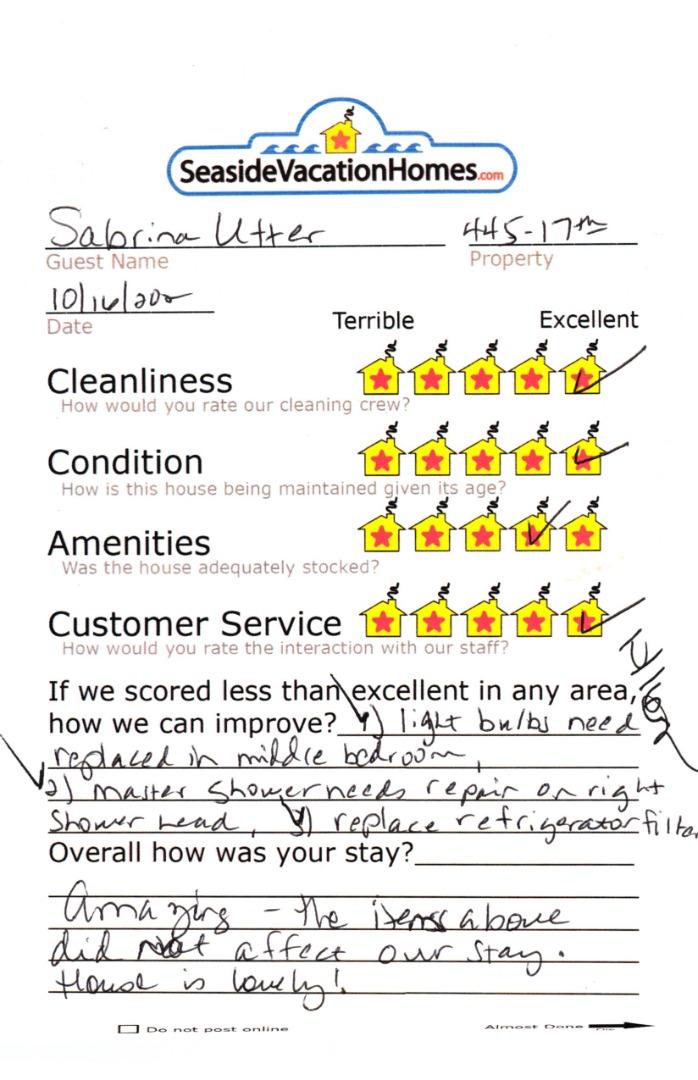 SeasideVacationHomes.com
Sabrina Utter 445-17th
Guest Name Property
10/16/202
Date
Terrible Excellent
Cleanliness
How would you rate our cleaning crew?
Condition
How is this house being maintained given its age?
Amenities
Was the house adequately stocked?
Customer Service
How would you rate the interaction with our staff?
If we scored less than excellent in any area,
how we can improve? 1) light bulbs need
replaced in middle bedroom,
2) master shower needs repair on right
shower head, 3) replace refrigerator filter
Overall how was your stay?
Amazing - the items above
did not affect our stay.
House is lovely!
Do not post online Almost Done